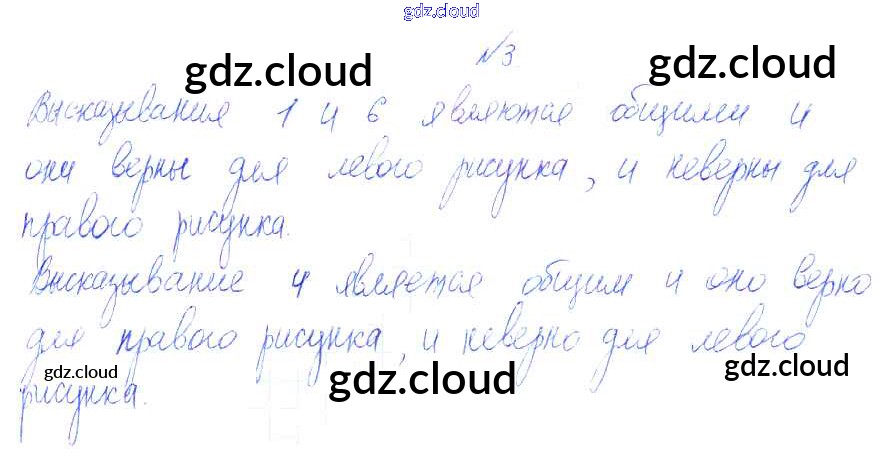 gdz.cloud
№3.
gdz.cloud gdz.cloud
Высказывания 1 и 6 являются общими и
они верны для левого рисунка, и неверны для
правого рисунка.
Высказывание 4 является общим и оно верно
для правого рисунка, и неверно для левого
gdz.cloud gdz.cloud gdz.cloud
рисунка.